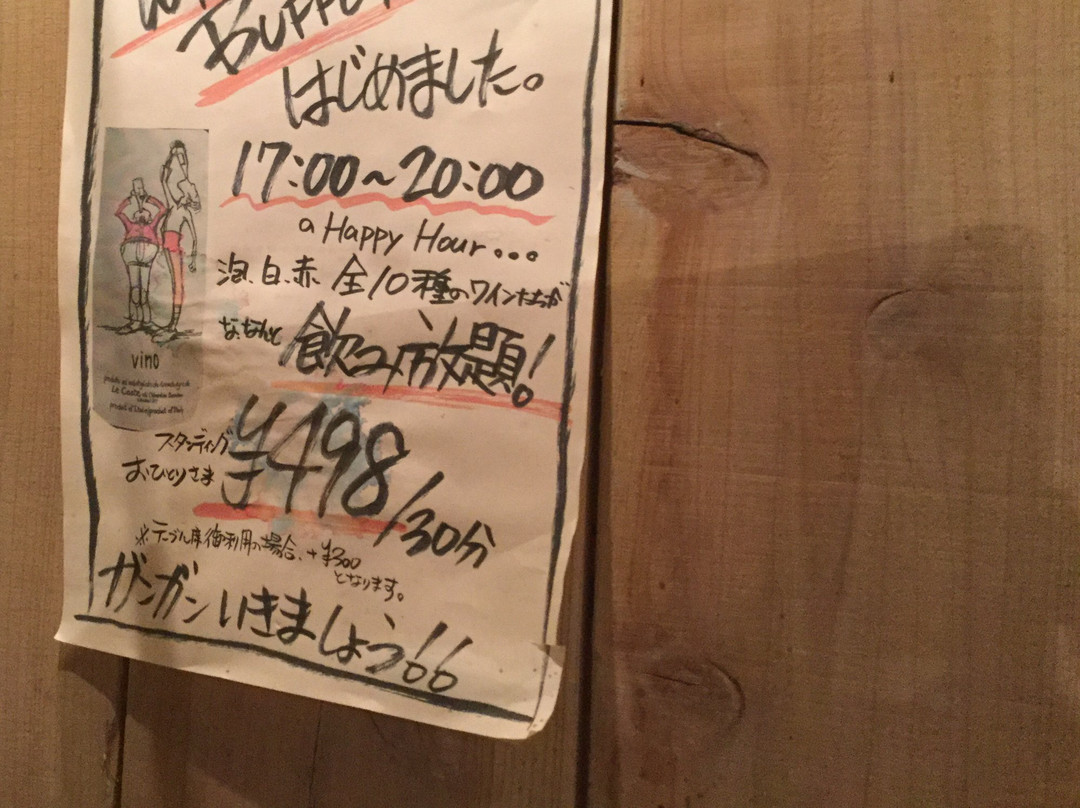 Buffet
はじめました。
17:00～20:00
a Happy Hour...
泡、白、赤 全10種のワインたちが
な、なんと 飲み放題!
vino
Le Coste
スタンディング
おひとりさま
¥498/30分
※テーブル席御利用の場合、+¥300
となります。
ガンガンいきましょう!!